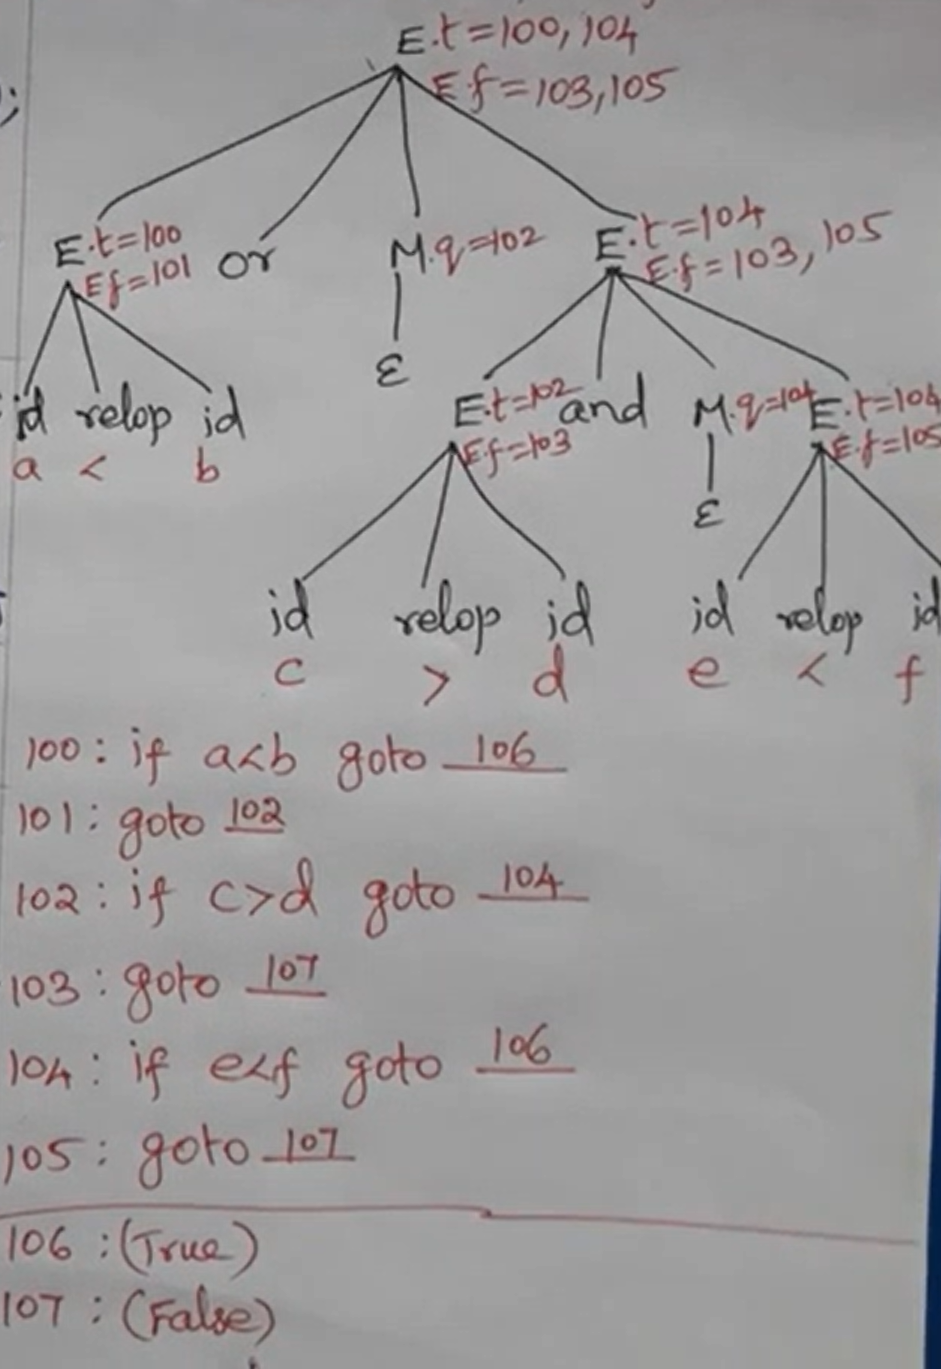 E.t=100,104
E.f=103,105
E.t=100 or M.q=102 E.t=104
E.f=101 E.f=103,105
ε
id relop id E.t=102 and M.q=104 E.t=104
a < b E.f=103 E.f=105
ε
id relop id id relop id
c > d e < f
100: if a<b goto 106
101: goto 102
102: if c>d goto 104
103: goto 107
104: if e<f goto 106
105: goto 107
106 :(True)
107 :(False)